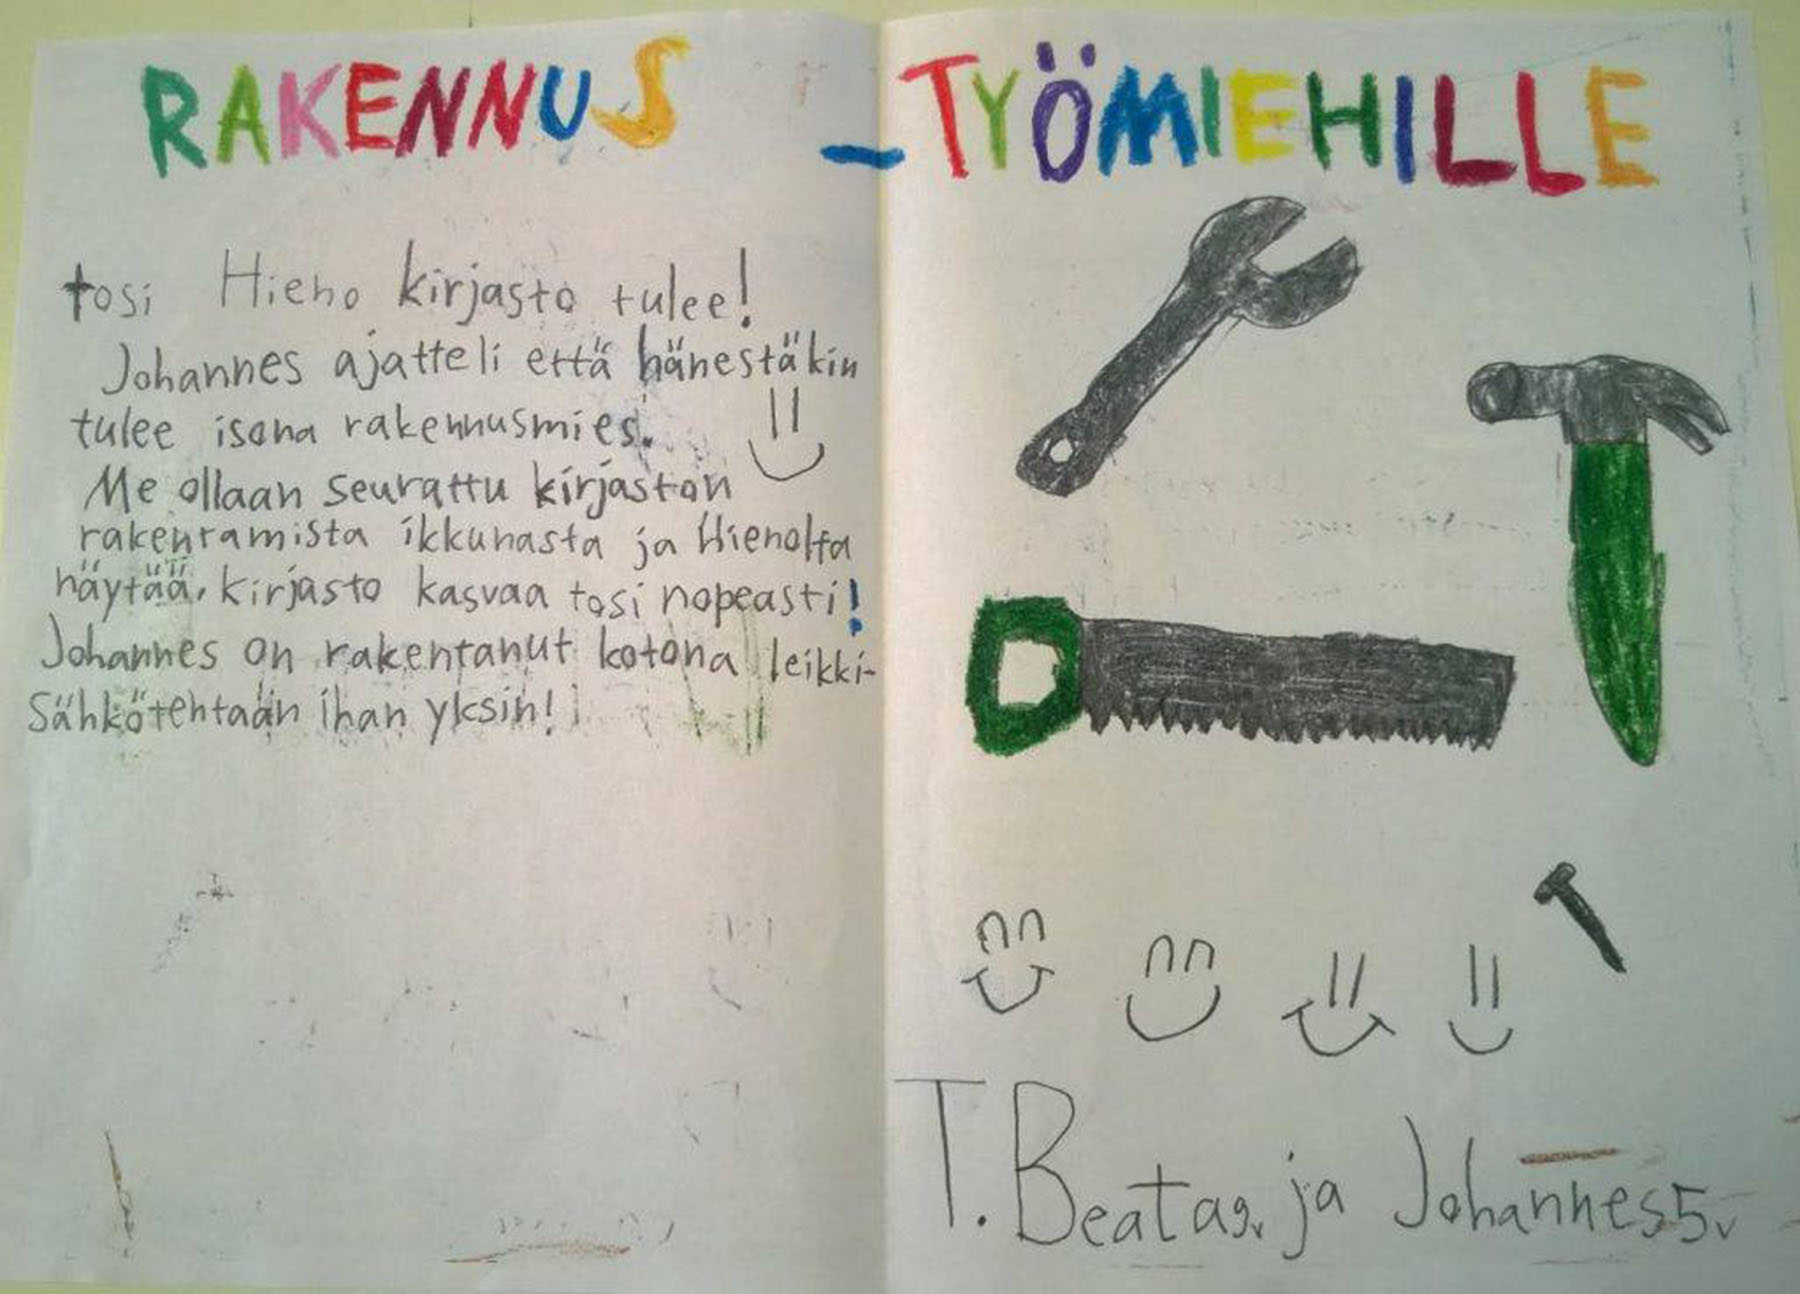 RAKENNUS-TYÖMIEHILLE
tosi Hieno kirjasto tulee!
Johannes ajatteli että hänestäkin
tulee isona rakennusmies.
Me ollaan seurattu kirjaston
rakentamista ikkunasta ja Hienolta
näytää, kirjasto kasvaa tosi nopeasti!
Johannes on rakentanut kotona leikki-
sähkötehtaan ihan yksin!
T. Beata 9v ja Johannes 5v